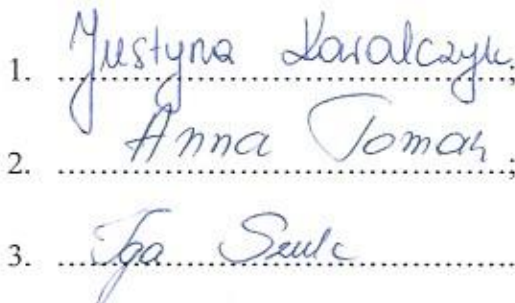 1. Justyna Kowalczyk;
2. Anna Toman;
3. Iga Szulc